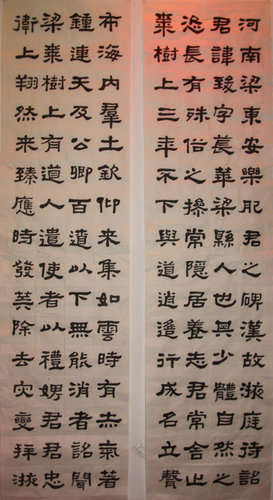 河南梁東安樂肥君之碑漢故掖庭待詔
君諱致字萇華梁縣人也其少體自然之
恣長有殊俗之操常隱居養志君常舍止
棗樹上三年不下與道逍遙行成名立聲
布海內羣士欽仰來集如雲時有赤氣著
鍾連天及公卿百遼以下無能消者詔聞
梁棗樹上有道人遣使者以禮娉君君忠
衛上翔然來臻應時發算除去災變拜掖